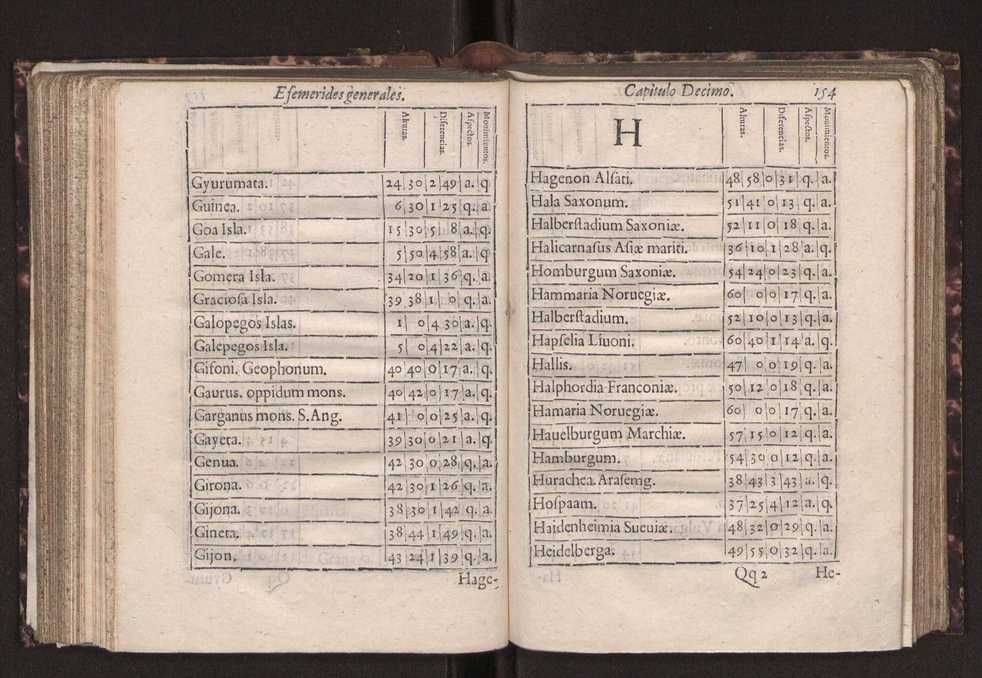 Efemerides generales.
Alturas. Diferencias. Aspectos. Mouimientos.
Gyurumata. 24 30 2 49 a. q
Guinea. 6 30 1 25 q. a
Goa Isla. 15 30 5 8 a. q.
Gale. 5 50 4 58 a. q
Gomera Isla. 34 20 1 36 q. a
Graciosa Isla. 39 38 1 0 q. a.
Galopegos Islas. 1 0 4 30 a. q.
Galepegos Isla. 5 0 4 22 a. q.
Gifoni. Geophonum. 40 40 0 17 a. q.
Gaurus. oppidum mons. 40 42 0 17 a. q.
Garganus mons. S. Ang. 41 0 0 25 a. q.
Gayeta. 39 30 0 21 a. q.
Genua. 42 30 0 28 q. a.
Girona. 42 30 1 26 q. a.
Gijona. 38 30 1 42 q. a
Gineta. 38 44 1 49 q. a.
Gijon. 43 24 1 39 q. a.
Hage-
Capitulo Decimo. 154
H
Alturas. Diferencias. Aspectos. Mouimientos.
Hagenon Alsati. 48 58 0 31 q. a.
Hala Saxonum. 51 41 0 13 q. a.
Halberstadium Saxoniæ. 52 11 0 18 q. a.
Halicarnasus Asiæ mariti. 36 10 1 28 a. q.
Homburgum Saxoniæ. 54 24 0 23 q. a.
Hammaria Noruegiæ. 60 0 0 17 q. a.
Halberstadium. 52 10 0 13 q. a.
Hapselia Liuoni. 60 40 1 14 a. q.
Hallis. 47 0 0 19 q. a.
Halphordia Franconiæ. 50 12 0 18 q. a.
Hamaria Noruegiæ. 60 0 0 17 q. a.
Hauelburgum Marchiæ. 57 15 0 12 q. a.
Hamburgum. 54 30 0 12 q. a.
Hurachea. Arasemg. 38 43 3 43 a. q.
Hospaam. 37 25 4 12 a. q.
Haidenheimia Sueuiæ. 48 32 0 29 q. a.
Heidelberga. 49 55 0 32 q. a.
Qq 2 He-